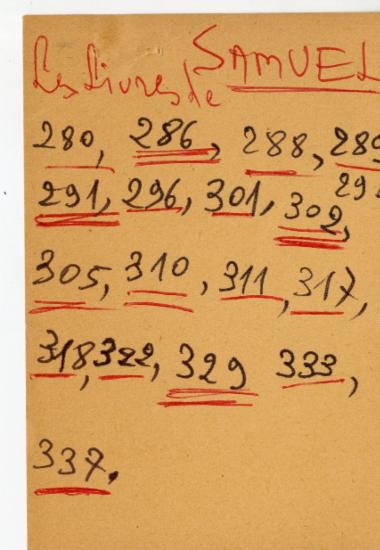 Les Livres de SAMUEL
280, 286, 288, 289
291, 296, 301, 302,
305, 310, 311, 317,
318, 322, 329 333,
337.